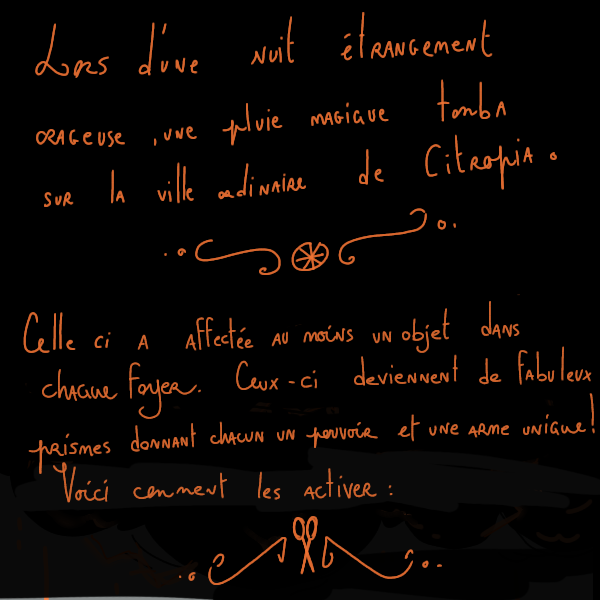 Lors d'une nuit étrangement
orageuse, une pluie magique tomba
sur la ville ordinaire de Citropia.
Celle ci a affectée au moins un objet dans
chaque foyer. Ceux-ci deviennent de fabuleux
prismes donnant chacun un pouvoir et une arme unique!
Voici comment les activer :